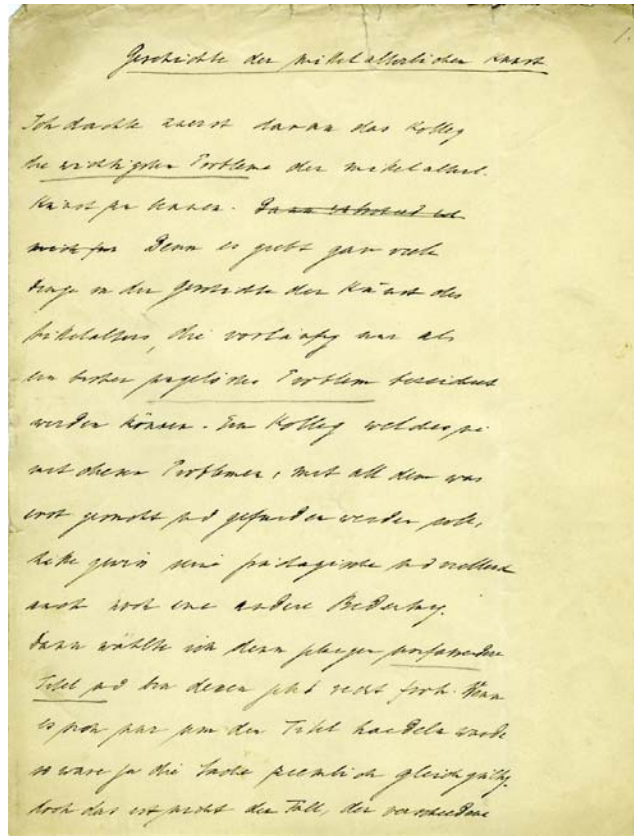 1.
Geschichte der mittelalterlichen Kunst
Ich dachte zuerst daran das Kolleg
die wichtigsten Probleme der mittelalterl.
Kunst zu nennen. Dann
Denn es giebt gar viele
Dinge in der Geschichte der Kunst des
Mittelalters, die vorläufig nur als
ein ungelöstes Problem bezeichnet
werden können. Ein Kolleg welches
mit diesen Problemen, mit all dem was
erst gesucht und gefunden werden solle,
hätte gewiss seine pädagogische und vielleicht
auch noch eine andere Bedeutung.
Dann wählte ich denn umfassenderen
Titel und bin dessen jetzt recht froh. Wenn
es sich nur um den Titel handeln würde
so wäre ja die Sache ziemlich gleichgültig.
doch das ist nicht der Fall, der verschiedene